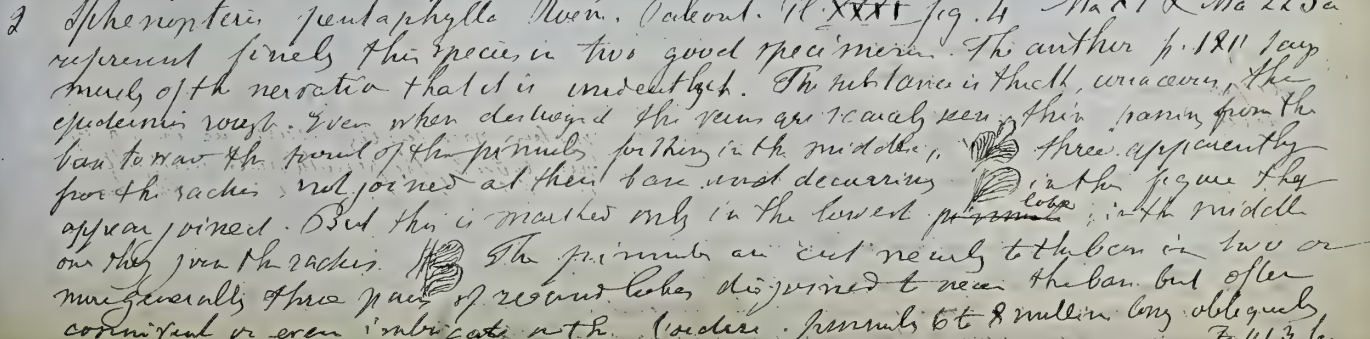 2 Sphenopteris pentaphylla Roem. Paleont. Pl. XXXI fig. 4
represent finely this species in two good specimen. The author p. 181 says
merely of the nervation that it is The substance is thick, the
epidermis rough. Even when destroyed the veins are scarcely seen, thin passing from the
base toward the of the pinnules forking in the middle, three apparently
from the rachis not joined at their base and decurring in the figure they
appear joined. But this is marked only in the lowest lobe ; in the middle
one they join the rachis. The pinnules are cut nearly to the base in two or
more generally three pairs of round lobes disjoined to near the base but often
connivent or even imbricate with pinnules 6 to 8 millim long obliquely